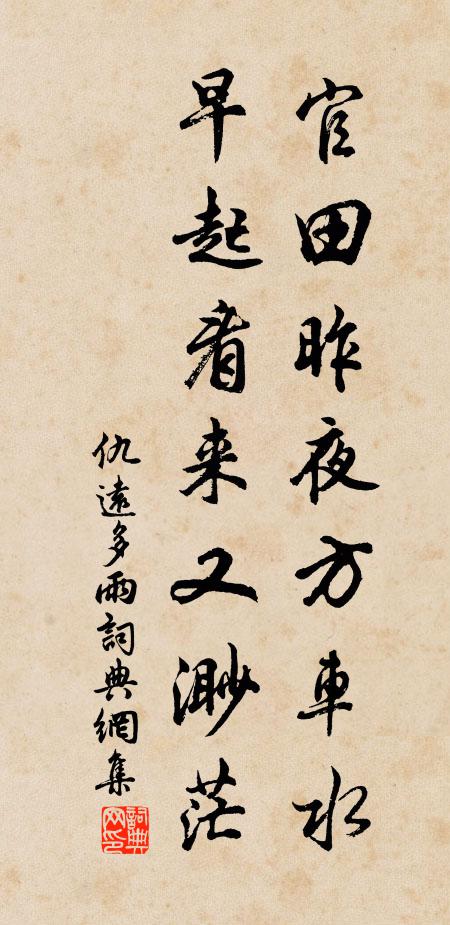 官田昨夜方車水
早起看来又渺茫
仇遠多雨詞典網集
詞典網印